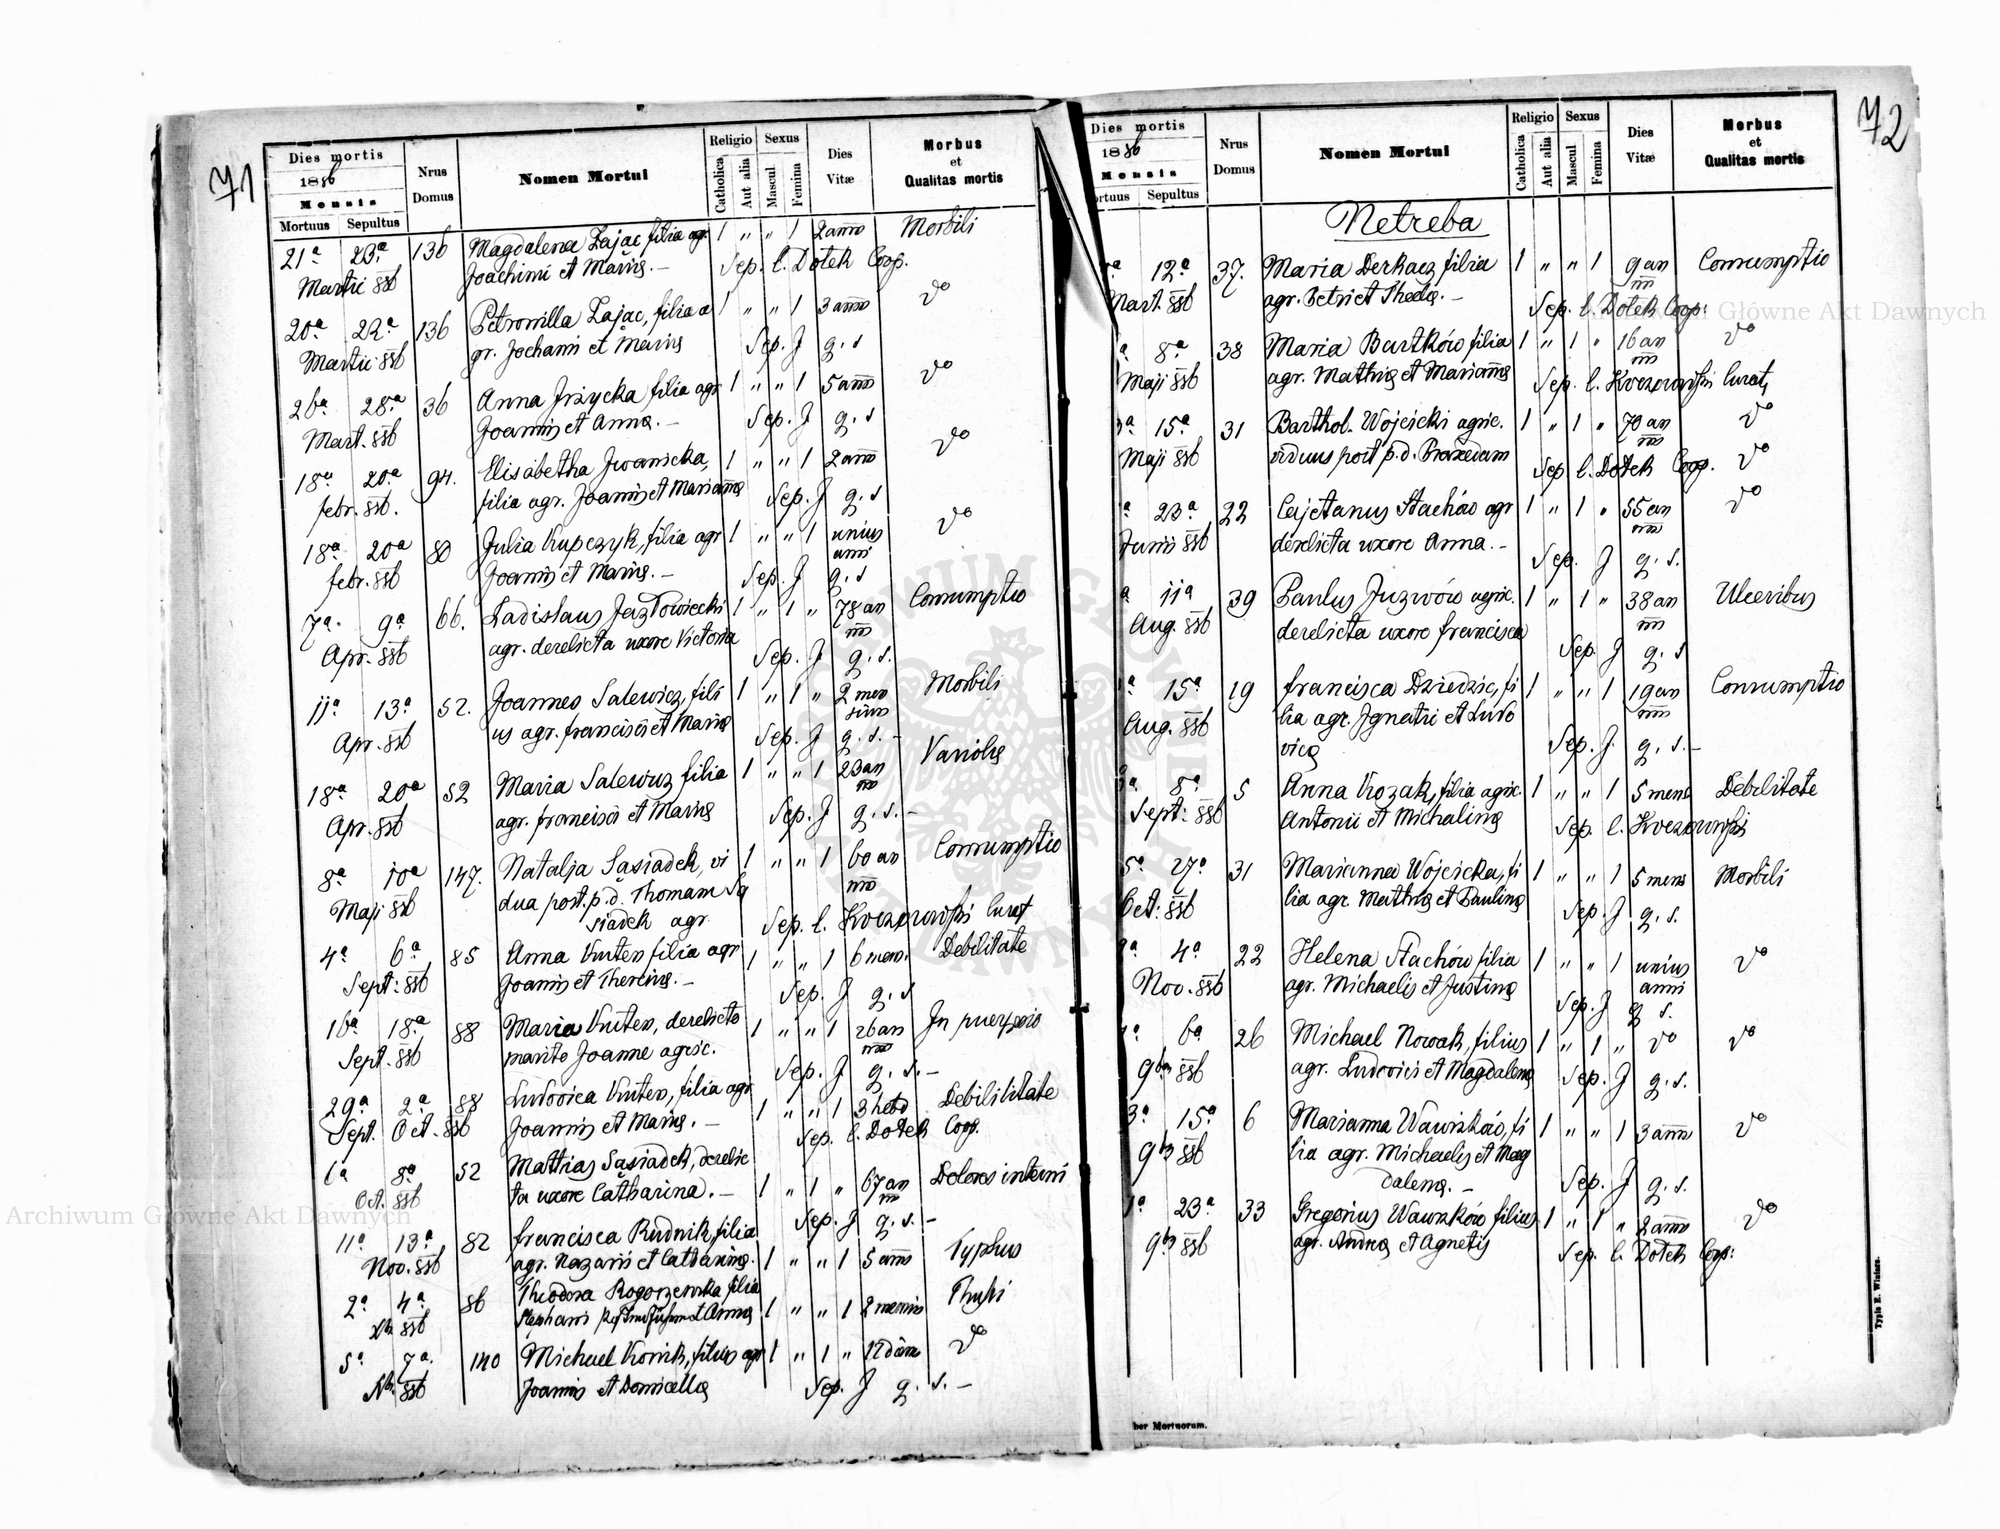 71
Dies mortis
1886
Mensis
Mortuus Sepultus
Nrus Domus
Nomen Mortui
Religio
Catholica Aut alia
Sexus
Mascul Femina
Dies Vitæ
Morbus et Qualitas mortis
21ª 23ª 136 Magdalena Zając, filia agr. 1 " " 1 2 ann Morbili
Martii 886 Joachimi et Mariæ. – Sep. l. Dotek Coop.
20ª 22ª 136 Petronilla Zając, filia a 1 " " 1 3 ann dº
Martii 886 gr. Jochami et Mariæ Sep. J q. s
26ª 28ª 36 Anna Jrzycka filia agr 1 " " 1 5 ann dº
Mart. 886 Joannis et Annæ. – Sep. J q. s
18ª 20ª 94. Elisabetha Jwanicka, 1 " " 1 2 ann dº
febr. 886. filia agr. Joannis et Mariannæ Sep. J q. s
18ª 20ª 80 Julia Kupczyk, filia agr 1 " " 1 unius anni dº
febr. 886 Joannis et Mariæ. – Sep. J q. s
7ª 9ª 66. Ladislaus Jazłowiecki 1 " 1 " 78 an Consumptio
Apr. 886 agr. derelicta uxore Victoria Sep. J q. s.
11ª 13ª 52. Joannes Salewicz, fili 1 " 1 " 2 men sium Morbili
Apr. 886 us agr. francisci et Mariæ Sep. J q. s. –
18ª 20ª 52 Maria Salewicz filia 1 " " 1 23 an Variolis
Apr. 886 agr. francisci et Mariæ Sep. J q. s. –
8ª 10ª 147. Natalja Sąsiadek, vi 1 " " 1 60 an Consumptio
Maji 886 dua post. p. d. Thomam Są
siadek agr. Sep. l. Kurat
4ª 6ª 85 Anna filia agr 1 " " 1 6 mens. Debilitate
Sept: 886 Joannis et Theresiæ. – Sep. J q. s
16ª 18ª 88 Maria derelicto 1 " " 1 26 an In puerperio
Sept. 886 marito Joanne agric. Sep. J q. s. –
29ª 2ª 88 Ludovica filia agr 1 " " 1 3 hebd Debililitate
Sept. Oct. 886 Joannis et Mariæ. – Sep. l. Dotek Coop.
6ª 8ª 52 Mathias Sąsiadek, derelic
Oct. 886 ta uxore Catharina. – 1 " 1 " 67 an Dolores interni
Sep. J q. s. –
11ª 13ª 82 francisca Rudnik, filia
Nov. 886 agr. Nazarii et Catharinæ. 1 " " 1 5 ann Typhus
2ª 4ª 86 Theodora Rogorzewska filia
886 Stephani et Annæ 1 " " 1 2 mensis
5ª 7ª 140 Michael filius agr 1 " 1 " 12 dim dº
886 Joannis et Domicellæ Sep. J q. s. –
72
Dies mortis
1886
Mensis
ortuus Sepultus
Nrus Domus
Nomen Mortui
Religio
Catholica Aut alia
Sexus
Mascul Femina
Dies Vitæ
Morbus et Qualitas mortis
Netreba
12ª 37. Maria Derkacz filia 1 " " 1 9 an Consumptio
Mart. 886 agr. Petri et Theclæ. – Sep. l. Dotek Coop:
8ª 38 Maria Bartków filia 1 " 1 " 16 an dº
Maji 886 agr. Mathiæ et Mariannæ Sep. l. Curat,
15ª 31 Barthol. Wojcicki agric. 1 " 1 " 70 an dº
Maji 886 viduus post p. d. Praxedam Sep l. Dotek Coop. dº
23ª 22 Cajetanus Stachów agr 1 " 1 " 55 an dº
Junii 886 derelicta uxore Anna. – Sep. J q. s.
11ª 39 Paulus Juzwów agric. 1 " 1 " 38 an Ulceribus
Aug. 886 derelicta uxore francisca Sep. J q. s
15ª 19 francisca Dziedzic, fi 1 " " 1 19 an Consumptio
Aug. 886 lia agr. Jgnatii et Ludo
vicæ Sep. J. q. s. –
8ª 5 Anna Kozak, filia agric. 1 " " 1 5 mens Debilitate
Sept: 886 Antonii et Michalinæ Sep. l.
27ª 31 Marianna Wojcicka, fi 1 " " 1 5 mens Morbili
Oct: 886 lia agr. Mathiæ et Paulinæ Sep. J q. s.
4ª 22 Helena Stachów filia 1 " " 1 unius anni dº
Nov. 886 agr. Michaelis et Justinæ Sep. J q s.
6ª 26 Michael Nowak, filius 1 " 1 " dº dº
9br 886 agr. Ludovici et Magdalenæ Sep. J q. s.
15ª 6 Marianna Wawrzków, fi 1 " " 1 3 ann dº
9br 886 lia agr. Michaelis et Mag
dalenæ. – Sep. J q. s.
23ª 33 Gregorius Wawrzków filius 1 " 1 " 2 ann dº
9br 886 agr. Andreæ et Agnetis Sep. l. Dotek Coop:
ber Mortuorum.
Typis E. Winiarz.
Archiwum Główne Akt Dawnych
Archiwum Główne Akt Dawnych